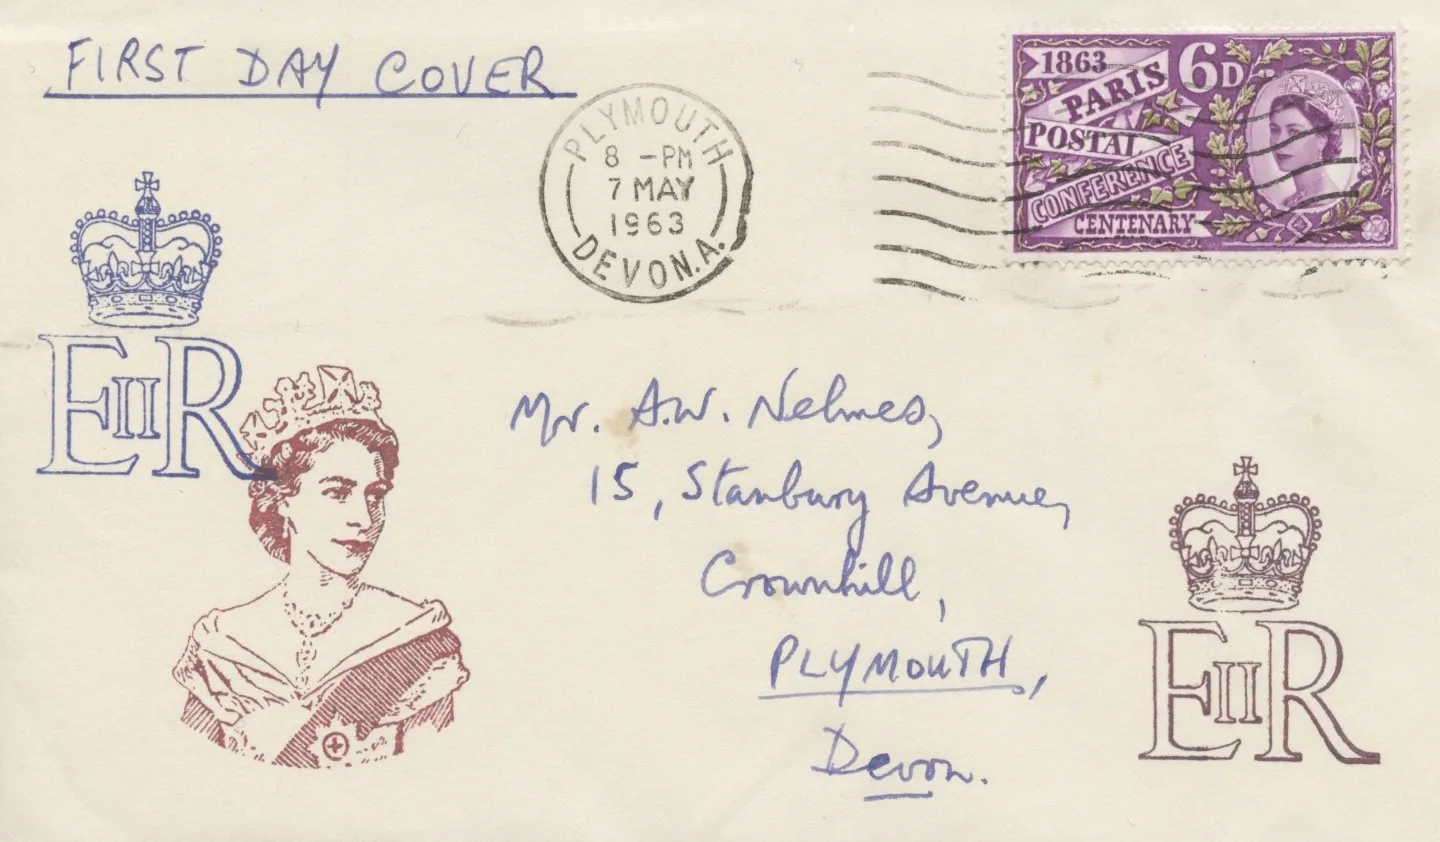 FIRST DAY COVER
PLYMOUTH
8 - PM
7 MAY
1963
DEVON.A.
1863
PARIS
6D
POSTAL
CONFERENCE
CENTENARY
EIIR
Mr. A.W. Nelmes,
15, Stanbury Avenue,
Crownhill,
PLYMOUTH,
Devon.
EIIR